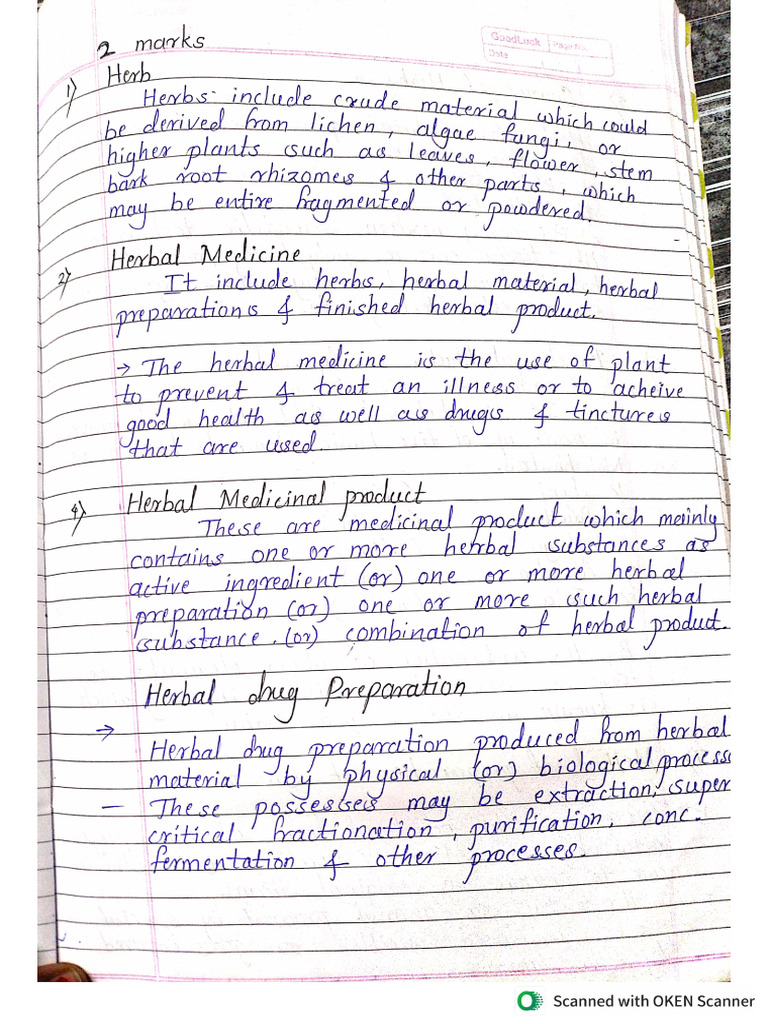 2 marks
GoodLuck Page No.
Date
1) Herb
Herbs include crude material which could
be derived from lichen, algae fungi, or
higher plants such as leaves, flower, stem
bark root rhizomes & other parts, which
may be entire fragmented or powdered.
2) Herbal Medicine
It include herbs, herbal material, herbal
preparations & finished herbal product.
→ The herbal medicine is the use of plant
to prevent & treat an illness or to acheive
good health as well as drugs & tinctures
that are used.
4) Herbal Medicinal product
These are medicinal product which mainly
contains one or more herbal substances as
active ingredient (or) one or more herbal
preparation (or) one or more such herbal
substance. (or) combination of herbal product.
Herbal drug Preparation
→ Herbal drug preparation produced from herbal
material by physical (or) biological process
- These possesses may be extraction, super
critical fractionation, purification, conc.
fermentation & other processes.
Scanned with OKEN Scanner